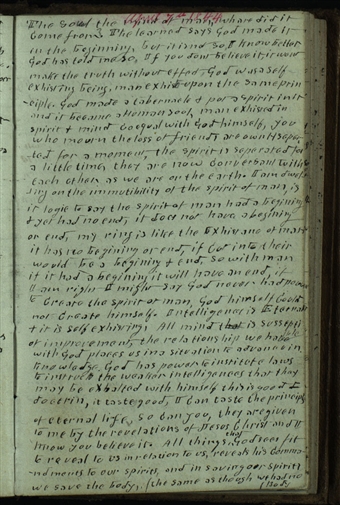 April 7th 1844
The Soul the mind of man, whare did it
come from? The learned says God made it
in the beginning, but it is not so, I know better
God has told me so, If you dont believe it, it wont
make the truth without effect, God was a self
exhisting being, man exhist upon the same prin
ciple. God made a tabernacle & put a spirit in it
and it became a Human soul, man exhisted in
spirit & mind coequal with God himself, you
who mourn the loss of friends are ownly seper
ated for a moment, the spirit is seperated for
a little time, they are now conversant with
each other as we are on the earth. I am dwell
ing on the immutibility of the spirit of man, is
it logic to say the spirit of man had a begining
& yet had no end, it does not have a begining
or end, my ring is like the Exhistance of man
it has no begining or end, if cut into their
would be a begining & end, so with man
if it had a begining it will have an end, if
I am right I might say God never had power
to Create the spirit of man, God himself could
not Create himself. Intelligence is Eternal
& it is self exhisting. All mind is suscepti
of improvement, the relationship we have
with God places us in a situation to advance in
knowledge. God has power to institute laws
to instruct the weaker intelligences that they
may be exhalted with himself this is good
doctrin, it taste good, I can taste the principles
of eternal life, so can you, they are given
to me by the revelations of Jesus Christ and I
know you believe it. All things that God sees fit
to reveal to us in relation to us, reveals his comma
ndments to our spirits, and in saving our spirits
we save the body, the same as though we had no
body